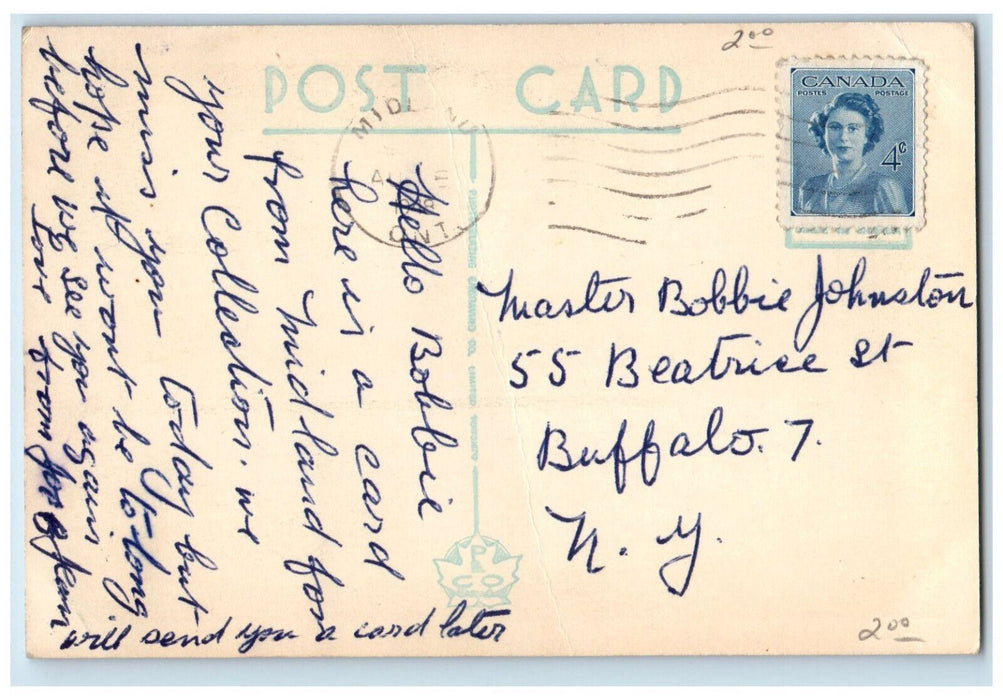 2⁰⁰
POST CARD
CANADA
POSTES POSTAGE
4¢
MIDLAND
ONT.
Hello Bobbie
here is a card
from Midland for
your Collection. we
miss you today but
hope it wont be to long
before we see you again
Love from Joe & Jean
will send you a card later
Master Bobbie Johnston
55 Beatrice St
Buffalo. 7.
N. Y.
P
& CO
2⁰⁰